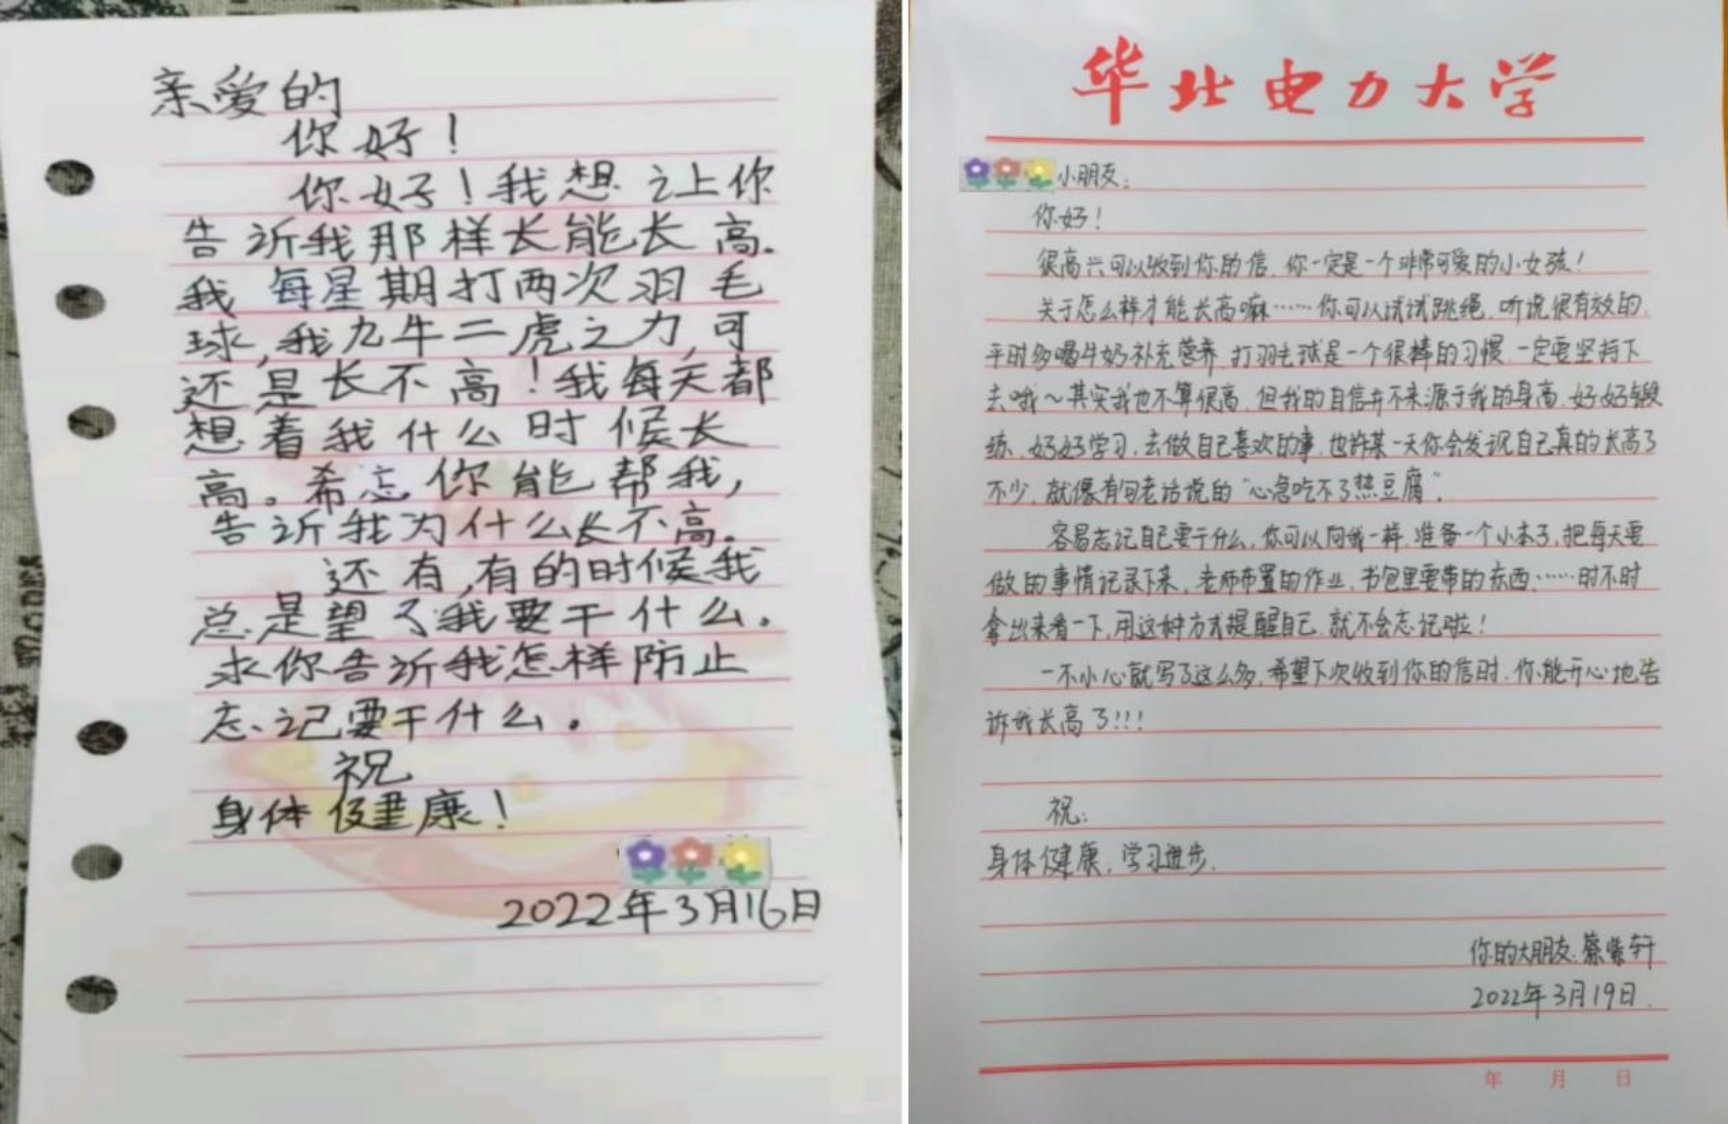 亲爱的
你好！
你好！我想让你
告沂我那样长能长高.
我每星期打两次羽毛
球,我九牛二虎之力,可
还是长不高！我每天都
想着我什么时候长
高。希忘你能帮我，
告沂我为什么长不高。
还有,有的时候我
总是望了我要干什么。
求你告沂我怎样防止
忘记要干什么。
祝
身体健康！
2022年3月16日
华北电力大学
小朋友：
你好！
很高兴可以收到你的信，你一定是一个非常可爱的小女孩！
关于怎么样才能长高嘛……你可以试试跳绳，听说很有效的，
平时多喝牛奶补充营养，打羽毛球是一个很棒的习惯，一定要坚持下
去哦～其实我也不算很高，但我的自信并不来源于我的身高，好好锻
练，好好学习，去做自己喜欢的事，也许某一天你会发现自己真的长高了
不少，就像有句老话说的“心急吃不了热豆腐”。
容易忘记自己要干什么，你可以向我一样，准备一个小本子，把每天要
做的事情记录下来，老师布置的作业，书包里要带的东西……时不时
拿出来看一下，用这种方式提醒自己，就不会忘记啦！
一不小心就写了这么多，希望下次收到你的信时，你能开心地告
诉我长高了!!!
祝：
身体健康，学习进步．
你的大朋友：蔡紫轩
2022年3月19日
年 月 日